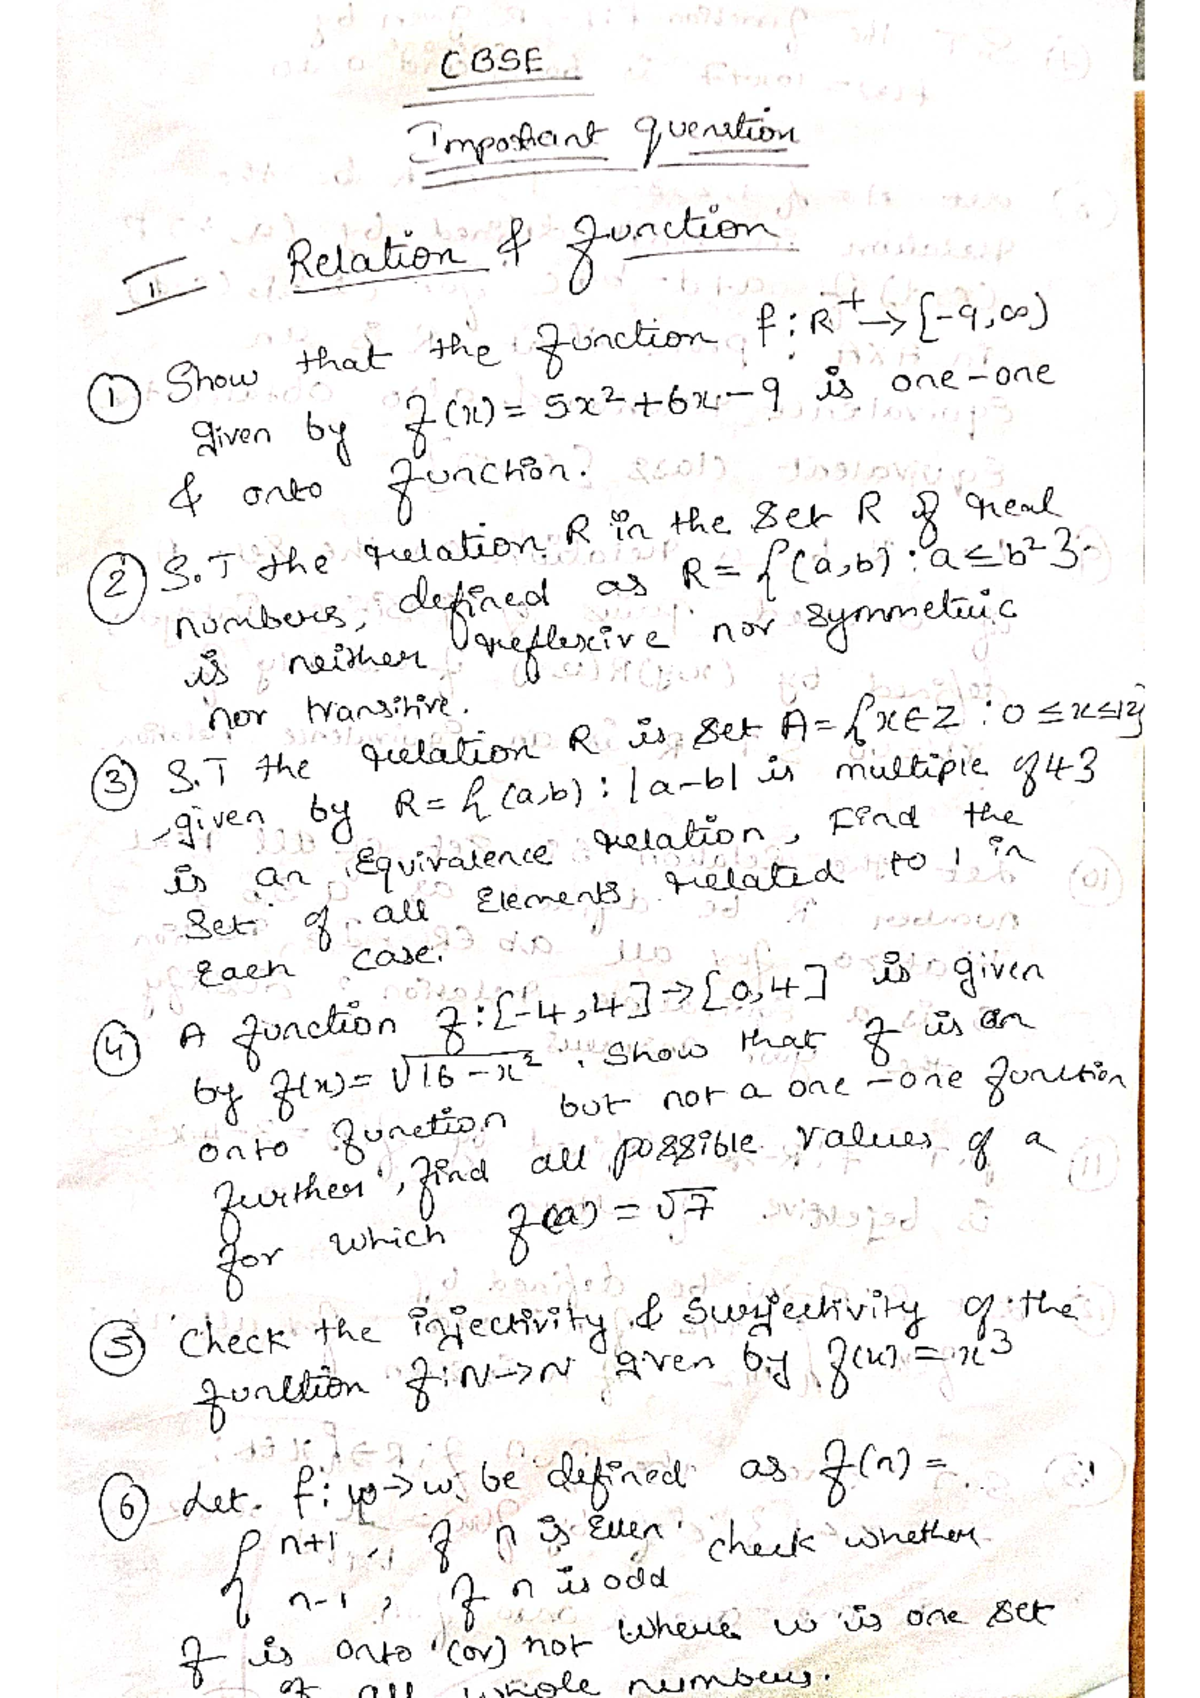 CBSE
Important question
II Relation & function
① Show that the function f : R⁺ → [-9, ∞)
given by f(x) = 5x² + 6x - 9 is one-one
& onto function.
② S.T the relation R in the set R of real
numbers, defined as R = {(a,b) : a ≤ b²}
is neither reflexive nor symmetric
nor transitive.
③ S.T the relation R is set A = {x∈Z : 0 ≤ x ≤ 12}
given by R = {(a,b) : |a-b| is multiple of 4}
is an Equivalence relation, Find the
Set of all Elements related to 1 in
Each case.
④ A function f : [-4,4] → [0,4] is given
by f(x) = √16 - x². Show that f is an
onto function but not a one-one function
further, find all possible values of a
for which f(a) = √7
⑤ Check the injectivity & surjectivity of the
function f : N → N given by f(x) = x³
⑥ Let f : w → w be defined as f(n) =
{ n+1, if n is even. check whether
n-1, if n is odd
f is onto (or) not where w is one set
of all whole numbers.